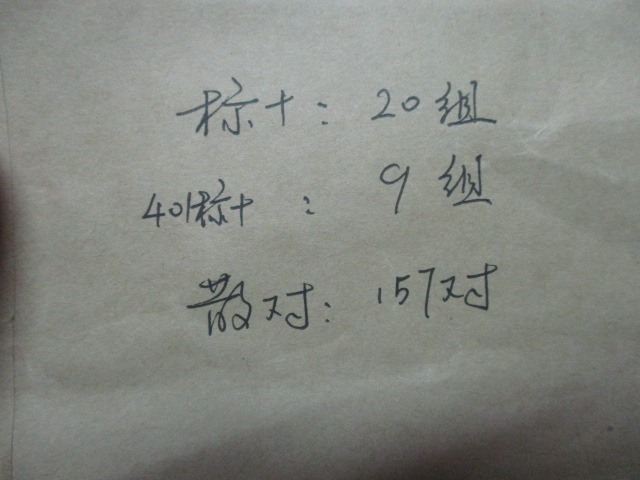 标十：20组
401标十：9组
散对：157对